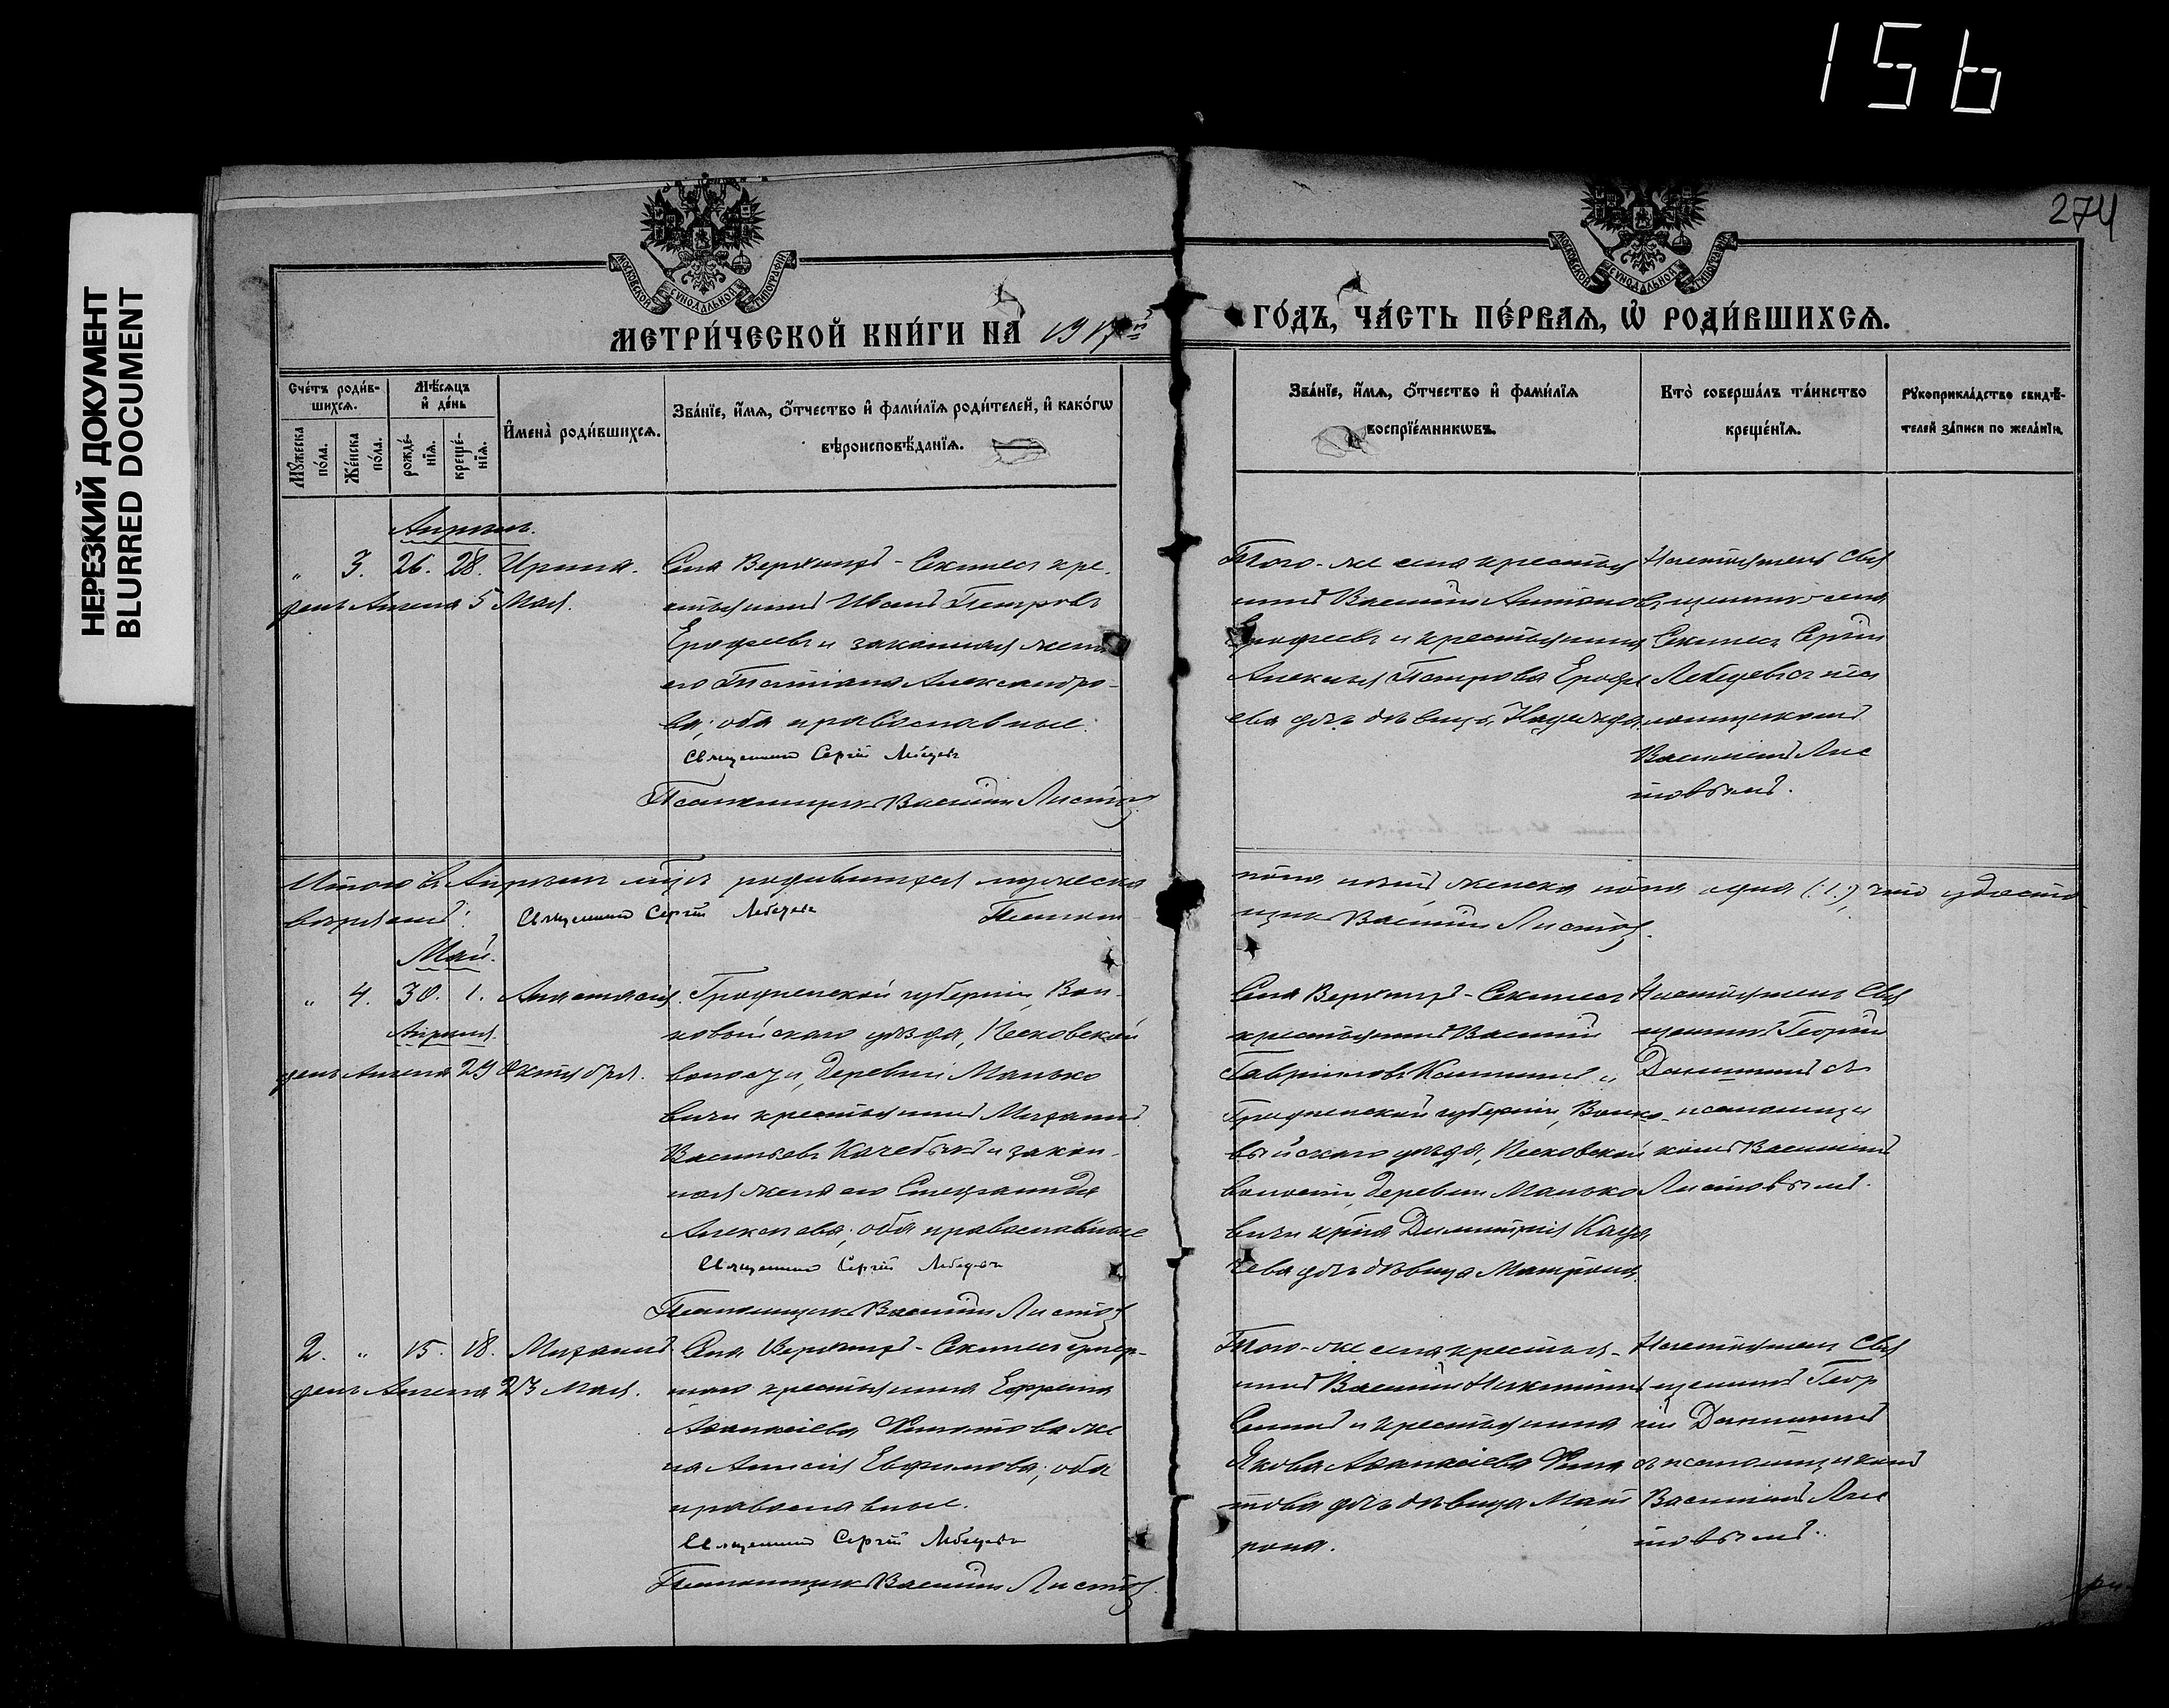 156
НЕРЕЗКИЙ ДОКУМЕНТ
BLURRED DOCUMENT
274
МОСКОВСКОЙ СѴНОДАЛЬНОЙ ТИПОГРАФІИ
МОСКОВСКОЙ СѴНОДАЛЬНОЙ ТИПОГРАФІИ
МЕТРИ́ЧЕСКОЙ КНИ́ГИ НА 1917й
ГО́ДЪ, ЧА́СТЬ ПЕ́РВАѦ, Ѡ҆ РОДИ́ВШИХСѦ.
Сче́тъ роди́в-
шихсѧ.
Мꙋ́жеска по́ла.
Же́нска по́ла.
Мѣ́сѧцъ и҆ де́нь
рожде́-
нїѧ.
креще́-
нїѧ.
И҆мена̀ роди́вшихсѧ.
Зва́нїе, и҆́мѧ, ѻ҆́тчество и҆ фами́лїѧ роди́телей, и҆ како́гѡ
вѣроисповѣ́данїѧ.
Зва́нїе, и҆́мѧ, ѻ҆́тчество и҆ фами́лїѧ
воспрїе́мникѡвъ.
Кто̀ соверша́лъ та́инство
креще́нїѧ.
Рꙋкоприкла́дство свидѣ́-
телей за́писи по жела́нїю.
Апрѣль.
„ 3. 26. 28. Ирина.
день Ангела 5 Мая.
Села Верхнихъ-Секинесь кре-
стьянинъ Иванъ Петровъ
Ерофеевъ и законная жена
его Татіана Александро-
ва; оба православные.
Священникъ Сергій Лебедевъ
Псаломщикъ Василій Листовъ
Того-же села крестья
нинъ Василій Антоновъ
Ерофеевъ и крестьянина
Алексія Петрова Ерофе
ева дочь дѣвица Надежда
Настоятель Свя
щенникъ села
Секинесь Сергій
Лебедевъ съ пса
ломщикомъ
Василіемъ Лис
товымъ.
Итого въ Апрѣлѣ м҃цѣ родившихся мужеска пола никого, женска пола одна (:1:), что удосто
вѣряемъ: Священникъ Сергій Лебедевъ Псалом-
щикъ Василій Листовъ.
Май.
„ 4. 30. 1. Анастасія.
Апрѣля.
день Ангела 29 Октября.
Гродненской губерніи, Вол-
ковыйскаго уѣзда, Песковской
волости, деревни Манько
вичи крестьянинъ Михаилъ
Васильевъ и закон-
ная жена его Степанида
Алексѣева; оба православные
Священникъ Сергій Лебедевъ
Псаломщикъ Василій Листовъ
Села Верхнихъ-Секинесь
крестьянинъ Василій
Гавриловъ и
Гродненской губерніи, Волко-
выйскаго уѣзда, Песковской
волости, деревни Манько
вичи кр-на Димитрія
дочь дѣвица Матрона.
Настоятель Свя
щенникъ Георгій
Далининъ съ
псаломщи
комъ Василіемъ
Листовымъ.
2. „ 15. 18. Михаилъ
день Ангела 23 Мая.
Села Верхнихъ-Секинесь умер-
шаго крестьянина Ефрема
Аѳанасіева Филатова же
на Анисія Евфимова; оба
православные.
Священникъ Сергій Лебедевъ
Псаломщикъ Василій Листовъ.
Того-же села крестья-
нинъ Василій Никитинъ
и крестьянина
Якова Аѳанасіева Фила
това дочь дѣвица Мат
рона.
Настоятель Свя
щенникъ Геор
гій Далининъ
съ псаломщикомъ
Василіемъ Лис
товымъ.